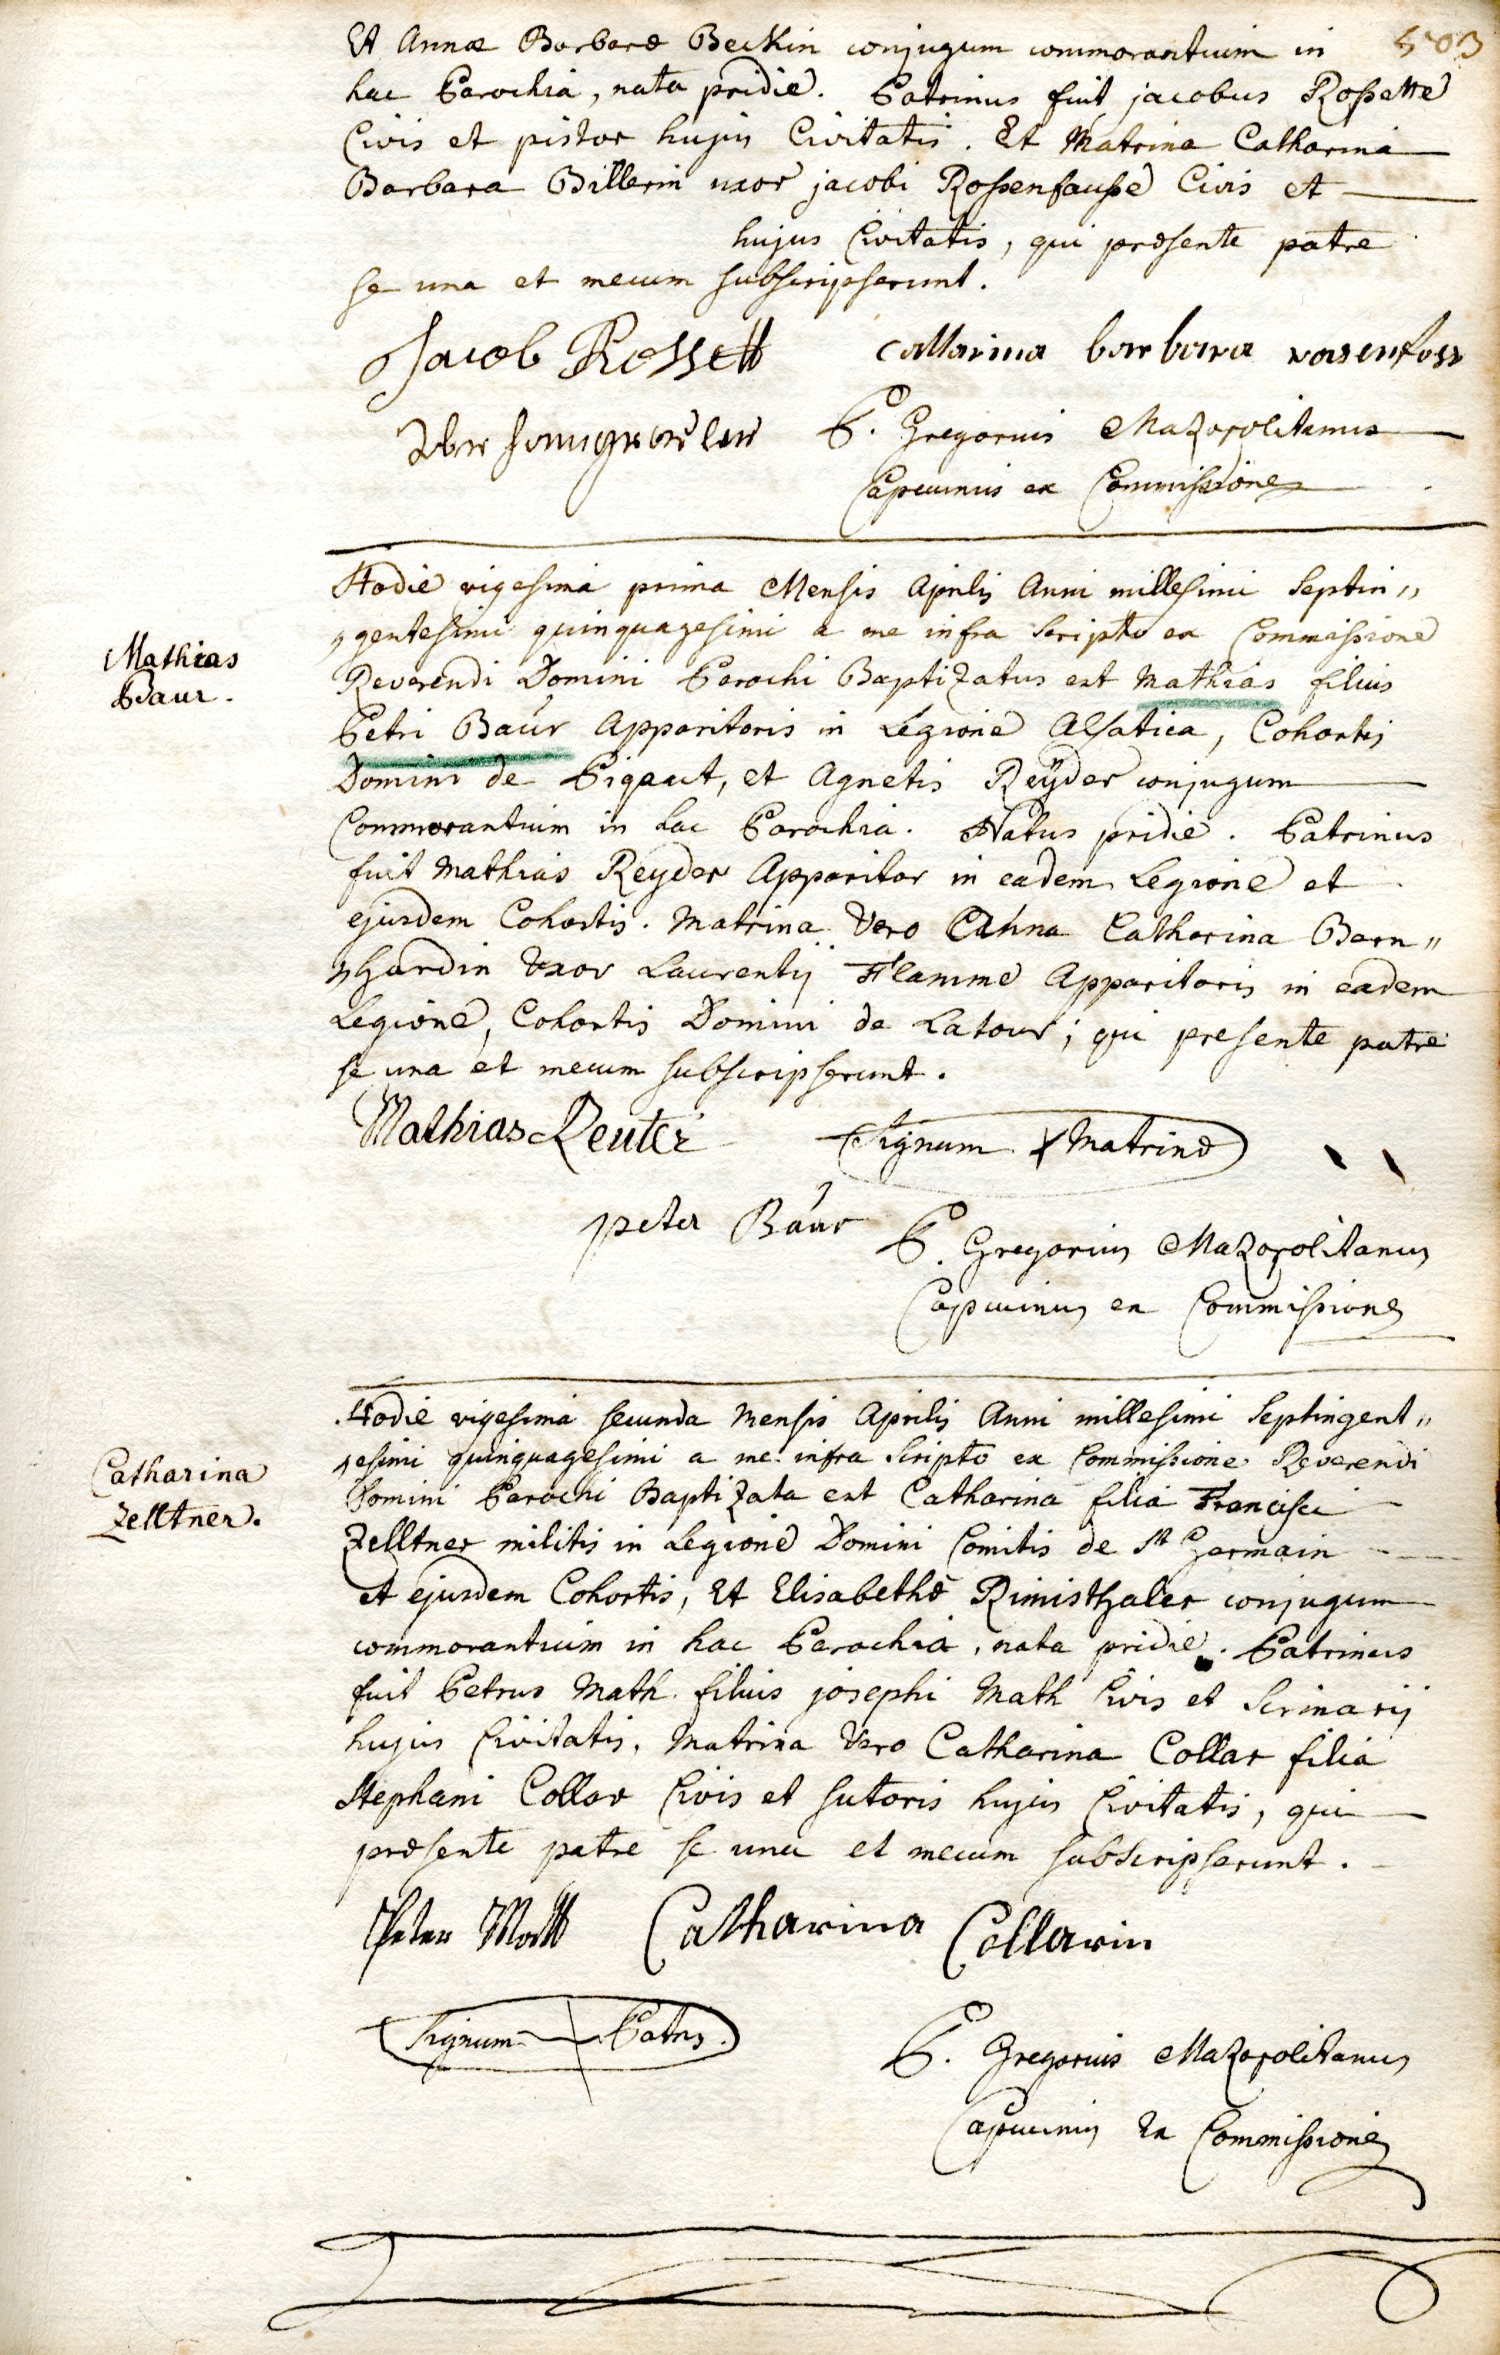 503
Et Annæ Barbaræ Beckin conjugum commorantium in
hac Parochia, nata pridie. Patrinus fuit jacobus Roßette
Civis et pistor hujus Civitatis. Et Matrina Catharina
Barbara Billerin uxor jacobi Roßenfauße Civis et
hujus Civitatis, qui præsente patre
se una et mecum subscripserunt.
Jacob Rossett Cattarina barbara rosenfoss
P. Gregorius Mazopolitanus
Capucinus ex Commissione
Hodie vigesima prima Mensis Aprilis Anni millesimi Septin„
„gentesimi quinquagesimi a me infra scripto ex Commissione
Mathias
Baur.
Reverendi Domini Parochi Baptizatus est Mathias filius
Petri Baur Apparitoris in Legione Alsatica, Cohortis
Domini de Pigact, et Agnetis Reÿder conjugum
Commorantium in hac Parochia. Natus pridie. Patrinus
fuit Mathias Reyder Apparitor in eadem Legione et
ejusdem Cohortis. Matrina Vero Anna Catharina Bern„
„hardin Uxor Laurentij Flamme Apparitoris in eadem
Legione, Cohortis Domini de Latour; qui presente patre
se una et mecum subscripserunt.
Mathias Reuter Signum X Matrinæ
peter Baur P. Gregorius Mazopolitanus
Capucinus ex Commissione
Hodie vigesima secunda Mensis Aprilis Anni millesimi Septingent„
„esimi quinquagesimi a me infra Scripto ex Commissione Reverendi
Catharina
Zelltner.
Domini Parochi Baptizata est Catharina filia Francisci
Zelltner militis in Legione Domini Comitis de St Germain
et ejusdem Cohortis, Et Elisabethæ Rimisthaler conjugum
commorantium in hac Parochia, nata pridie. Patrinus
fuit Petrus Math filius josephi Math Civis et Scrinarij
hujus Civitatis, Matrina Vero Catharina Collar filia
Stephani Collar Civis et sutoris hujus Civitatis, qui
præsente patre se una et mecum subscripserunt.
Peter Matt Catharina Collarin
Signum Patris P. Gregorius Mazopolitanus
Capucinus Ex Commissione